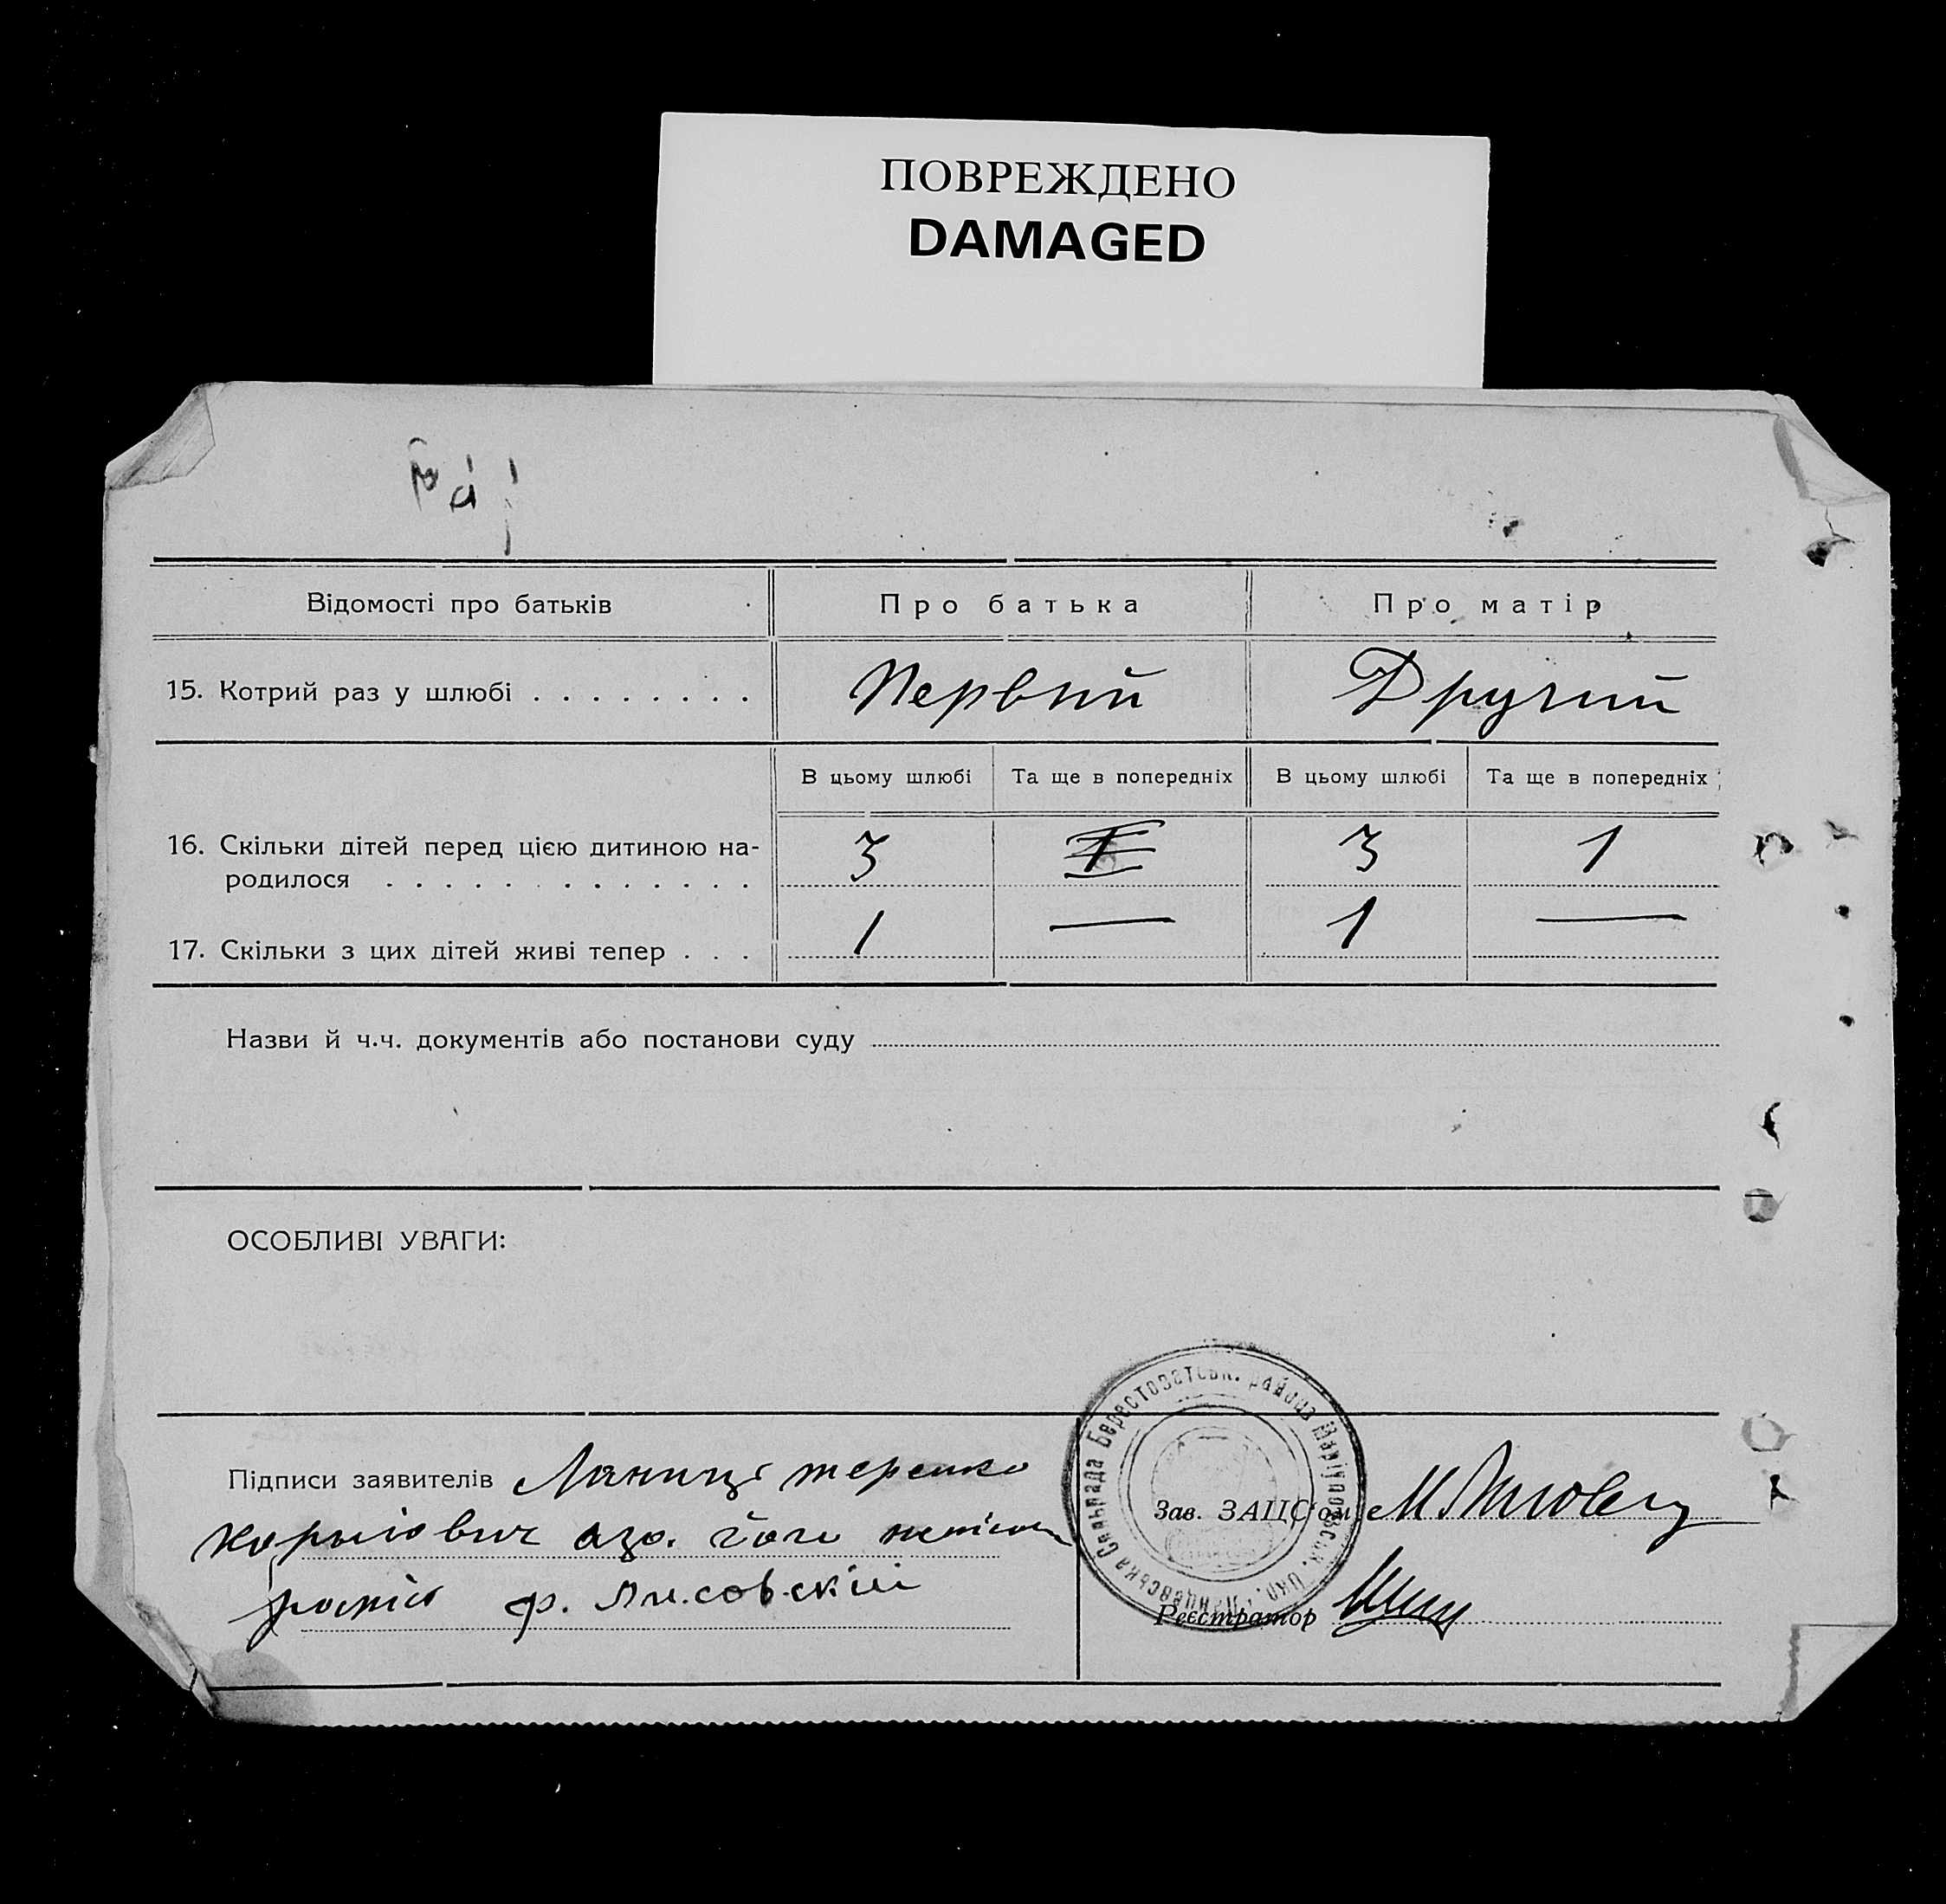 ПОВРЕЖДЕНО
DAMAGED
Відомості про батьків Про батька Про матір
15. Котрий раз у шлюбі . . . . . . . . Первий Другий
В цьому шлюбі Та ще в попередніх В цьому шлюбі Та ще в попередніх
16. Скільки дітей перед цією дитиною на-
родилося . . . . . . . . . . . . . 3 3 1
17. Скільки з цих дітей живі тепер . . . 1 — 1 —
Назви й ч.ч. документів або постанови суду
ОСОБЛИВІ УВАГИ:
Підписи заявителів
ф. Лисовский
Зав. ЗАЦС'ом
Реєстратор
Сільрада Берестоватськ. района Маріупольськ. Окр.